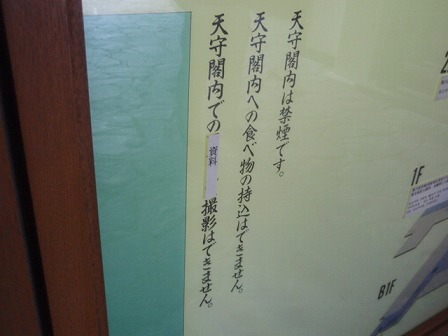 天守閣内は禁煙です。
天守閣内への食べ物の持込はできません。
天守閣内での資料撮影はできません。
1F
B1F